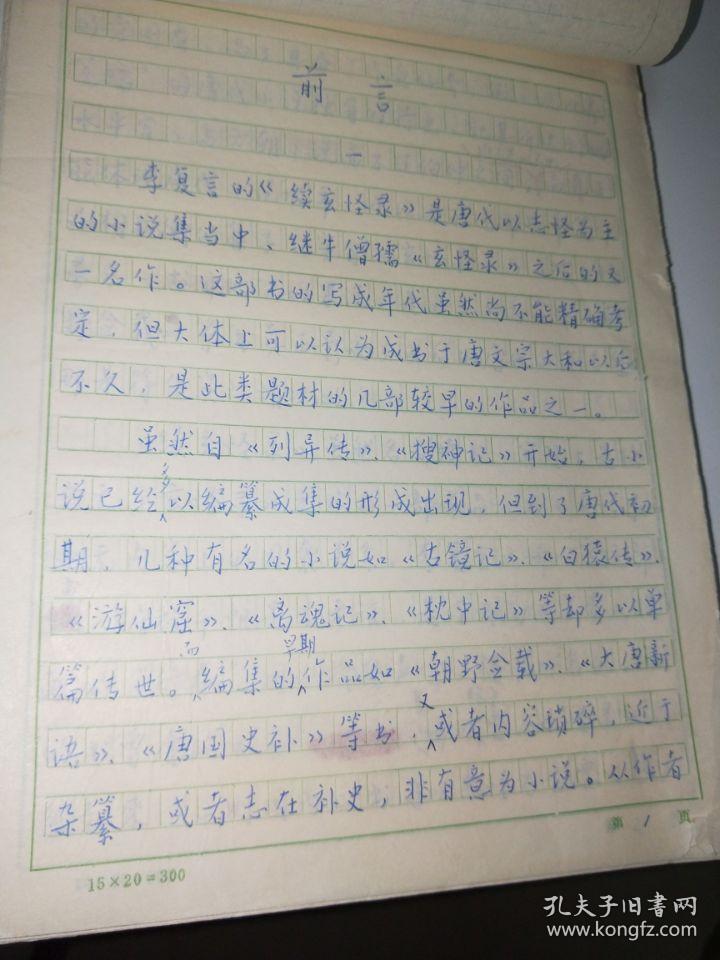 前言
一
李复言的《续玄怪录》是唐代以志怪为主
的小说集当中、继牛僧孺《玄怪录》之后的又
一名作。这部书的写成年代虽然尚不能精确考
定，但大体上可以认为成书于唐文宗大和以后
不久，是此类题材的几部较早的作品之一。
虽然自《列异传》、《搜神记》开始，古小
说已经多以编纂成集的形成出现，但到了唐代初
期，几种有名的小说如《古镜记》、《白猿传》、
《游仙窟》、《离魂记》、《枕中记》等却多以单
篇传世。而编集的早期作品如《朝野佥载》、《大唐新
语》、《唐国史补》等书，又或者内容琐碎，近于
杂纂，或者志在补史，非有意为小说。从作者
第1页
15×20=300
孔夫子旧书网
www.kongfz.com